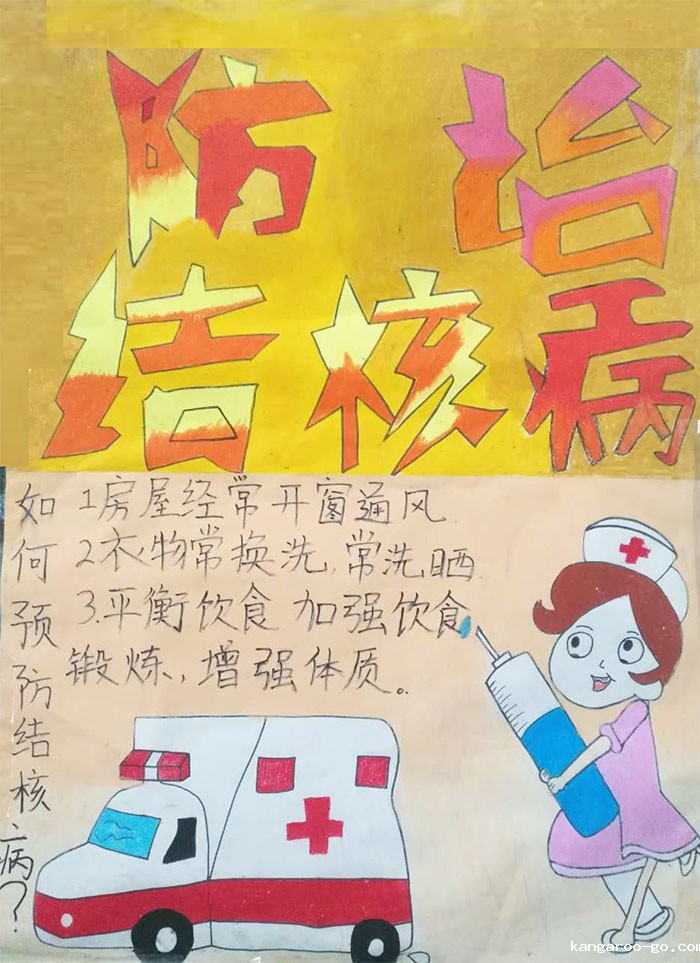 防治
结核病
如何预防结核病？
1房屋经常开窗通风.
2衣物常换洗,常洗晒.
3.平衡饮食 加强饮食
锻炼,增强体质。
kangaroo-go.com